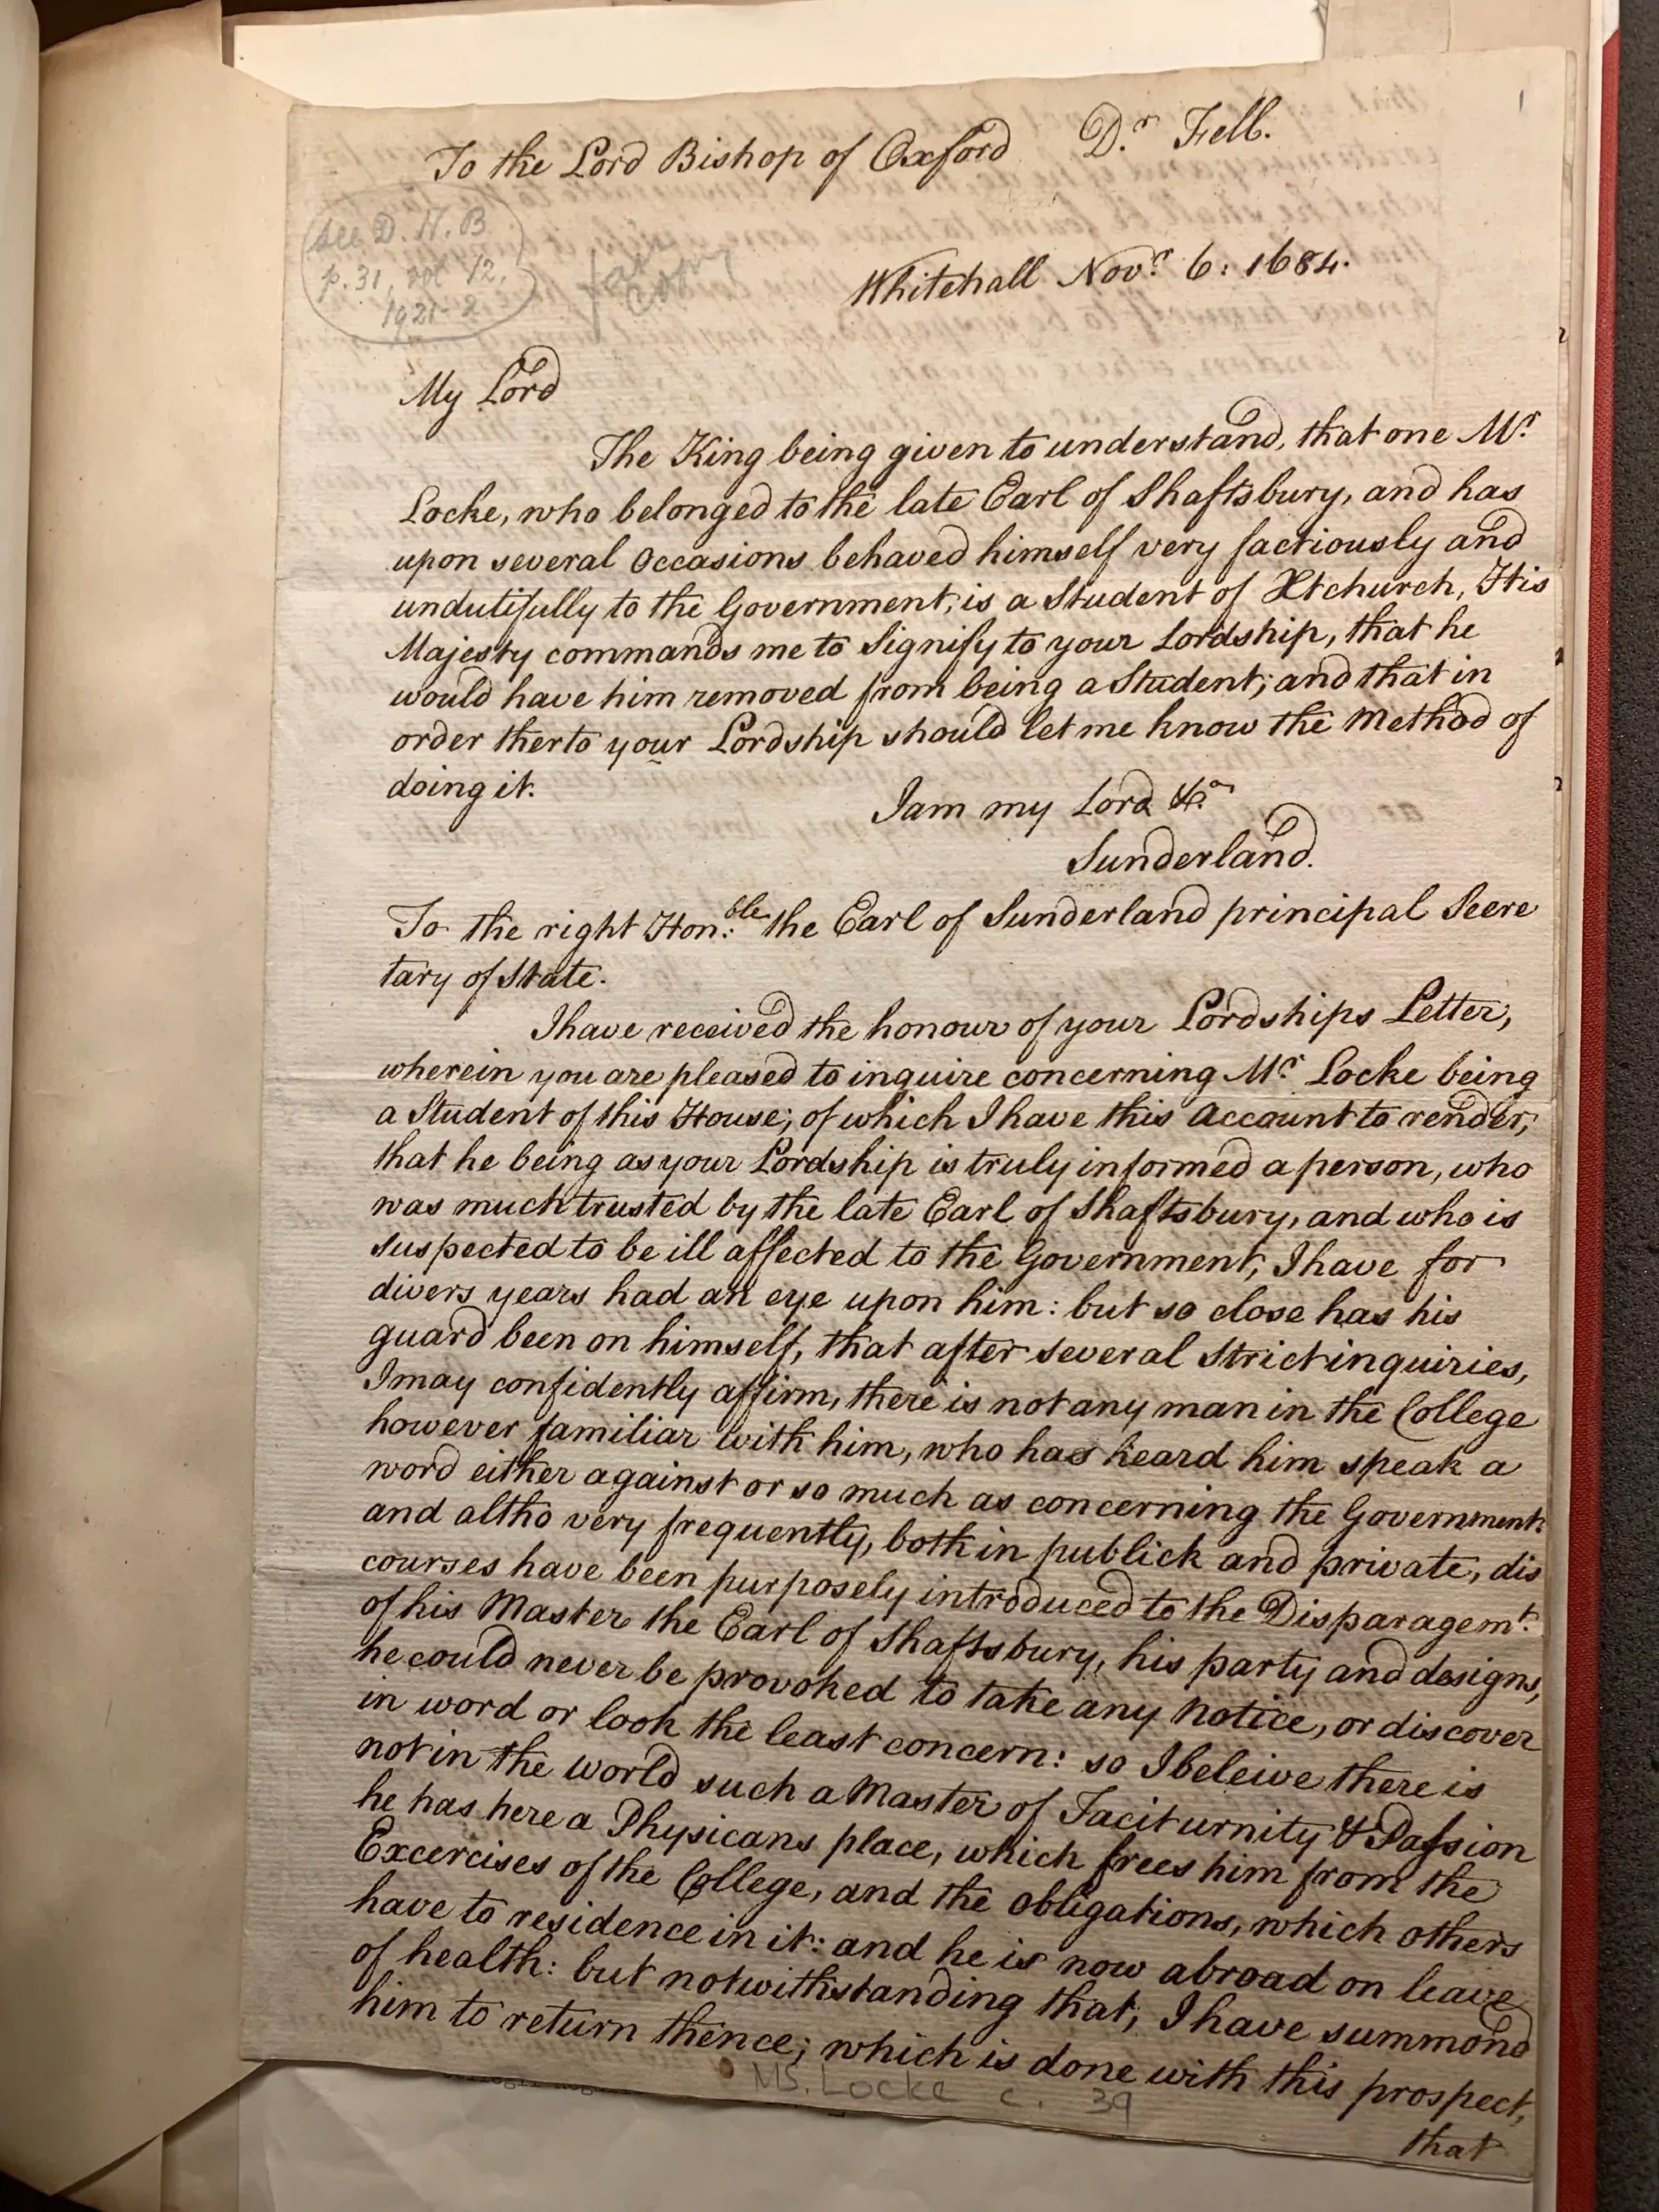 1
To the Lord Bishop of Oxford Dr. Fell.
see D. N. B
p. 31, vol 12,
1921-2
fair
copy
Whitehall Novr. 6: 1684.
My Lord
The King being given to understand, that one Mr.
Locke, who belonged to the late Earl of Shaftsbury, and has
upon several Occasions behaved himself very factiously and
undutifully to the Government, is a Student of Xtchurch, His
Majesty commands me to Signify to your Lordship, that he
would have him removed from being a Student; and that in
order therto your Lordship should let me know the Method of
doing it.
I am my Lord &c.
Sunderland.
To the right Hon:ble the Earl of Sunderland principal Secre
tary of State.
I have received the honour of your Lordships Letter,
wherein you are pleased to inquire concerning Mr. Locke being
a Student of this House; of which I have this Account to render,
that he being as your Lordship is truly informed a person, who
was much trusted by the late Earl of Shaftsbury, and who is
suspected to be ill affected to the Government, I have for
divers years had an eye upon him: but so close has his
guard been on himself, that after several Strict inquiries,
I may confidently affirm, there is not any man in the College
however familiar with him, who has heard him speak a
word either against or so much as concerning the Government
and altho very frequently, both in publick and private, dis
courses have been purposely introduced to the Disparagemt.
of his Master the Earl of Shaftsbury, his party and designs,
he could never be provoked to take any Notice, or discover
in word or look the least concern: so I beleive there is
not in the world such a Master of Taciturnity & Passion
he has here a Physicans place, which frees him from the
Excercises of the College, and the obligations, which others
have to residence in it: and he is now abroad on leave
of health: but notwithstanding that, I have summond
him to return thence; which is done with this prospect,
that
MS. Locke c. 39